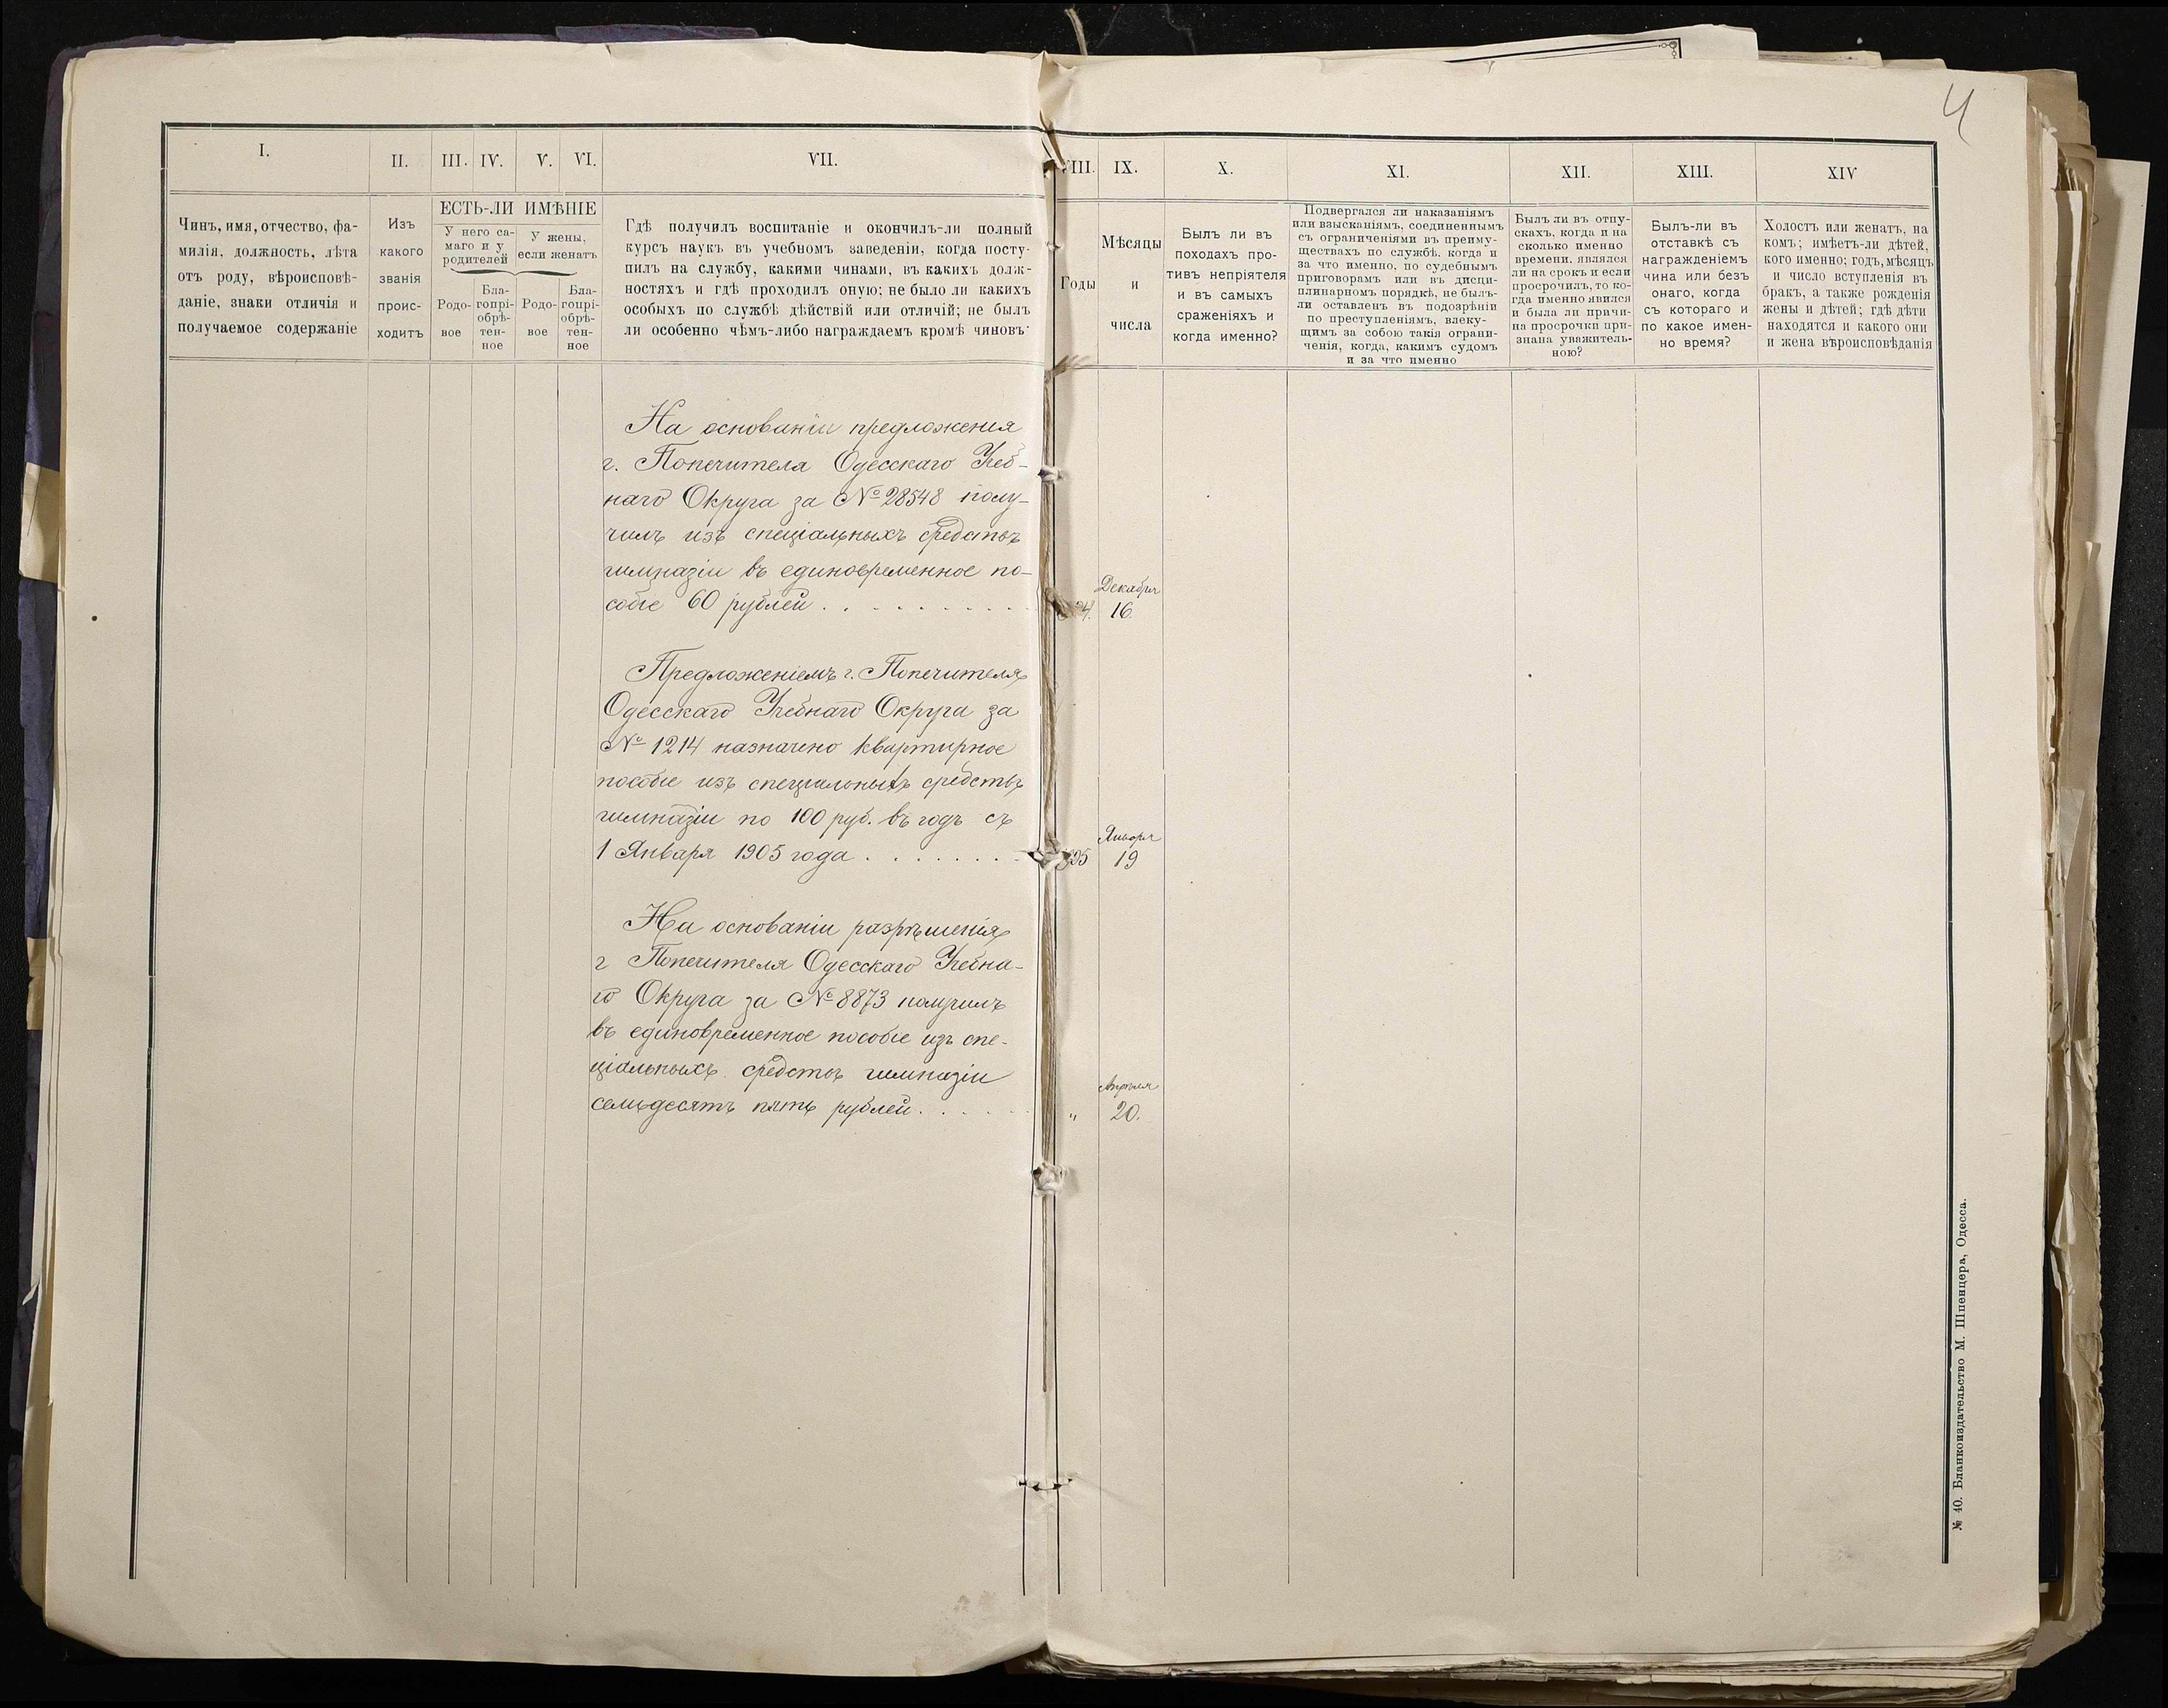 4
I.
II.
III.
IV.
V.
VI.
VII.
VIII.
IX.
X.
XI.
XII.
XIII.
XIV
Чинъ, имя, отчество, фа-
милія, должность, лѣта
отъ роду, вѣроисповѣ-
даніе, знаки отличія и
получаемое содержаніе
Изъ
какого
званія
проис-
ходитъ
ЕСТЬ-ЛИ ИМѢНІЕ
У него са-
маго и у
родителей
У жены,
если женатъ
Родо-
вое
Бла-
гопрі-
обрѣ-
тен-
ное
Родо-
вое
Бла-
гопрі-
обрѣ-
тен-
ное
Гдѣ получилъ воспитаніе и окончилъ-ли полный
курсъ наукъ въ учебномъ заведеніи, когда посту-
пилъ на службу, какими чинами, въ какихъ долж-
ностяхъ и гдѣ проходилъ оную; не было ли какихъ
особыхъ по службѣ дѣйствій или отличій; не былъ
ли особенно чѣмъ-либо награждаемъ кромѣ чиновъ
Годы
Мѣсяцы
и
числа
Былъ ли въ
походахъ про-
тивъ непріятеля
и въ самыхъ
сраженіяхъ и
когда именно?
Подвергался ли наказаніямъ
или взысканіямъ, соединеннымъ
съ ограниченіями въ преиму-
ществахъ по службѣ, когда и
за что именно, по судебнымъ
приговорамъ или въ дисци-
плинарномъ порядкѣ, не былъ-
ли оставленъ въ подозрѣніи
по преступленіямъ, влеку-
щимъ за собою такія ограни-
ченія, когда, какимъ судомъ
и за что именно
Былъ ли въ отпу-
скахъ, когда и на
сколько именно
времени, являлся
ли на срокъ и если
просрочилъ, то ко-
гда именно явился
и была ли причи-
на просрочки при-
знана уважитель-
ною?
Былъ-ли въ
отставкѣ съ
награжденіемъ
чина или безъ
онаго, когда
съ котораго и
по какое имен-
но время?
Холостъ или женатъ, на
комъ; имѣетъ-ли дѣтей,
кого именно; годъ, мѣсяцъ
и число вступленія въ
бракъ, а также рожденія
жены и дѣтей; гдѣ дѣти
находятся и какого они
и жена вѣроисповѣданія
На основаніи предложенія
г. Попечителя Одесскаго Учеб-
наго Округа за № 28548 полу-
чилъ изъ спеціальныхъ средствъ
гимназіи въ единовременное по-
собіе 60 рублей . . . . . . . . . .
4.
Декабря
16.
Предложеніемъ г. Попечителя
Одесскаго Учебнаго Округа за
№ 1214 назначено квартирное
пособіе изъ спеціальныхъ средствъ
гимназіи по 100 руб. въ годъ съ
1 Января 1905 года . . . . . . . .
05
Января
19
На основаніи разрѣшенія
г Попечителя Одесскаго Учебна-
го Округа за № 8873 получилъ
въ единовременное пособіе изъ спе-
ціальныхъ средствъ гимназіи
семьдесятъ пять рублей . . . . . .
"
Апрѣля
20.
№ 40. Бланкоиздательство М. Шпенцера, Одесса.